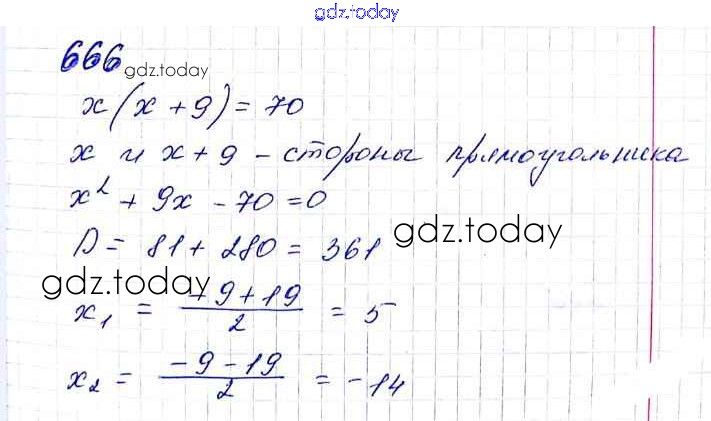 gdz.today
666 gdz.today
x(x+9)=70
x и x+9 - стороны прямоугольника
x² + 9x - 70 = 0
D = 81 + 280 = 361 gdz.today
gdz.today
x₁ = (-9+19)/2 = 5
x₂ = (-9-19)/2 = -14